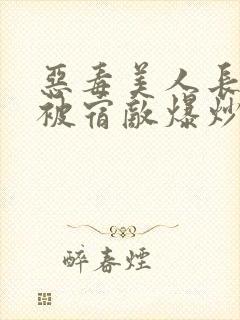 惡毒美人長
被宿敵爆炒
醉春煙